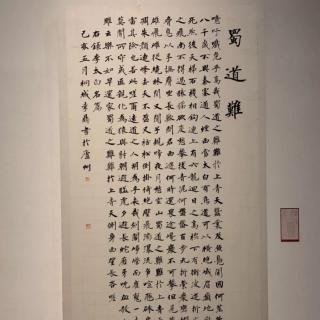 蜀道難
噫吁嚱危乎高哉蜀道之難難於上青天蠶叢及魚鳧開國何茫
八千歲不與秦塞通人煙西當太白有鳥道可以橫絕峨眉巔地崩
死然後天梯石棧相鉤連上有六龍回日之高標下有衝波逆折
之飛尚不得過猿猱欲度愁攀援青泥何盤盤百步九折縈巖巒
脅息以手撫膺坐長嘆問君西遊何時還畏途巉巖不可攀但見
雌從繞林間又聞子規啼夜月愁空山蜀道之難難於上青天
凋朱顏連峰去天不盈尺枯松倒掛倚絕壁飛湍瀑流爭喧豗砯
雷其險也若此嗟爾遠道之人胡為乎來哉劍閣崢嶸而崔嵬一
莫開所守或匪親化為狼與豺朝避猛虎夕避長蛇磨牙吮血殺
雖云樂不如早還家蜀道之難難於上青天側身西望長咨嗟
右錄李太白名篇
己亥五月桐城李書於廬州